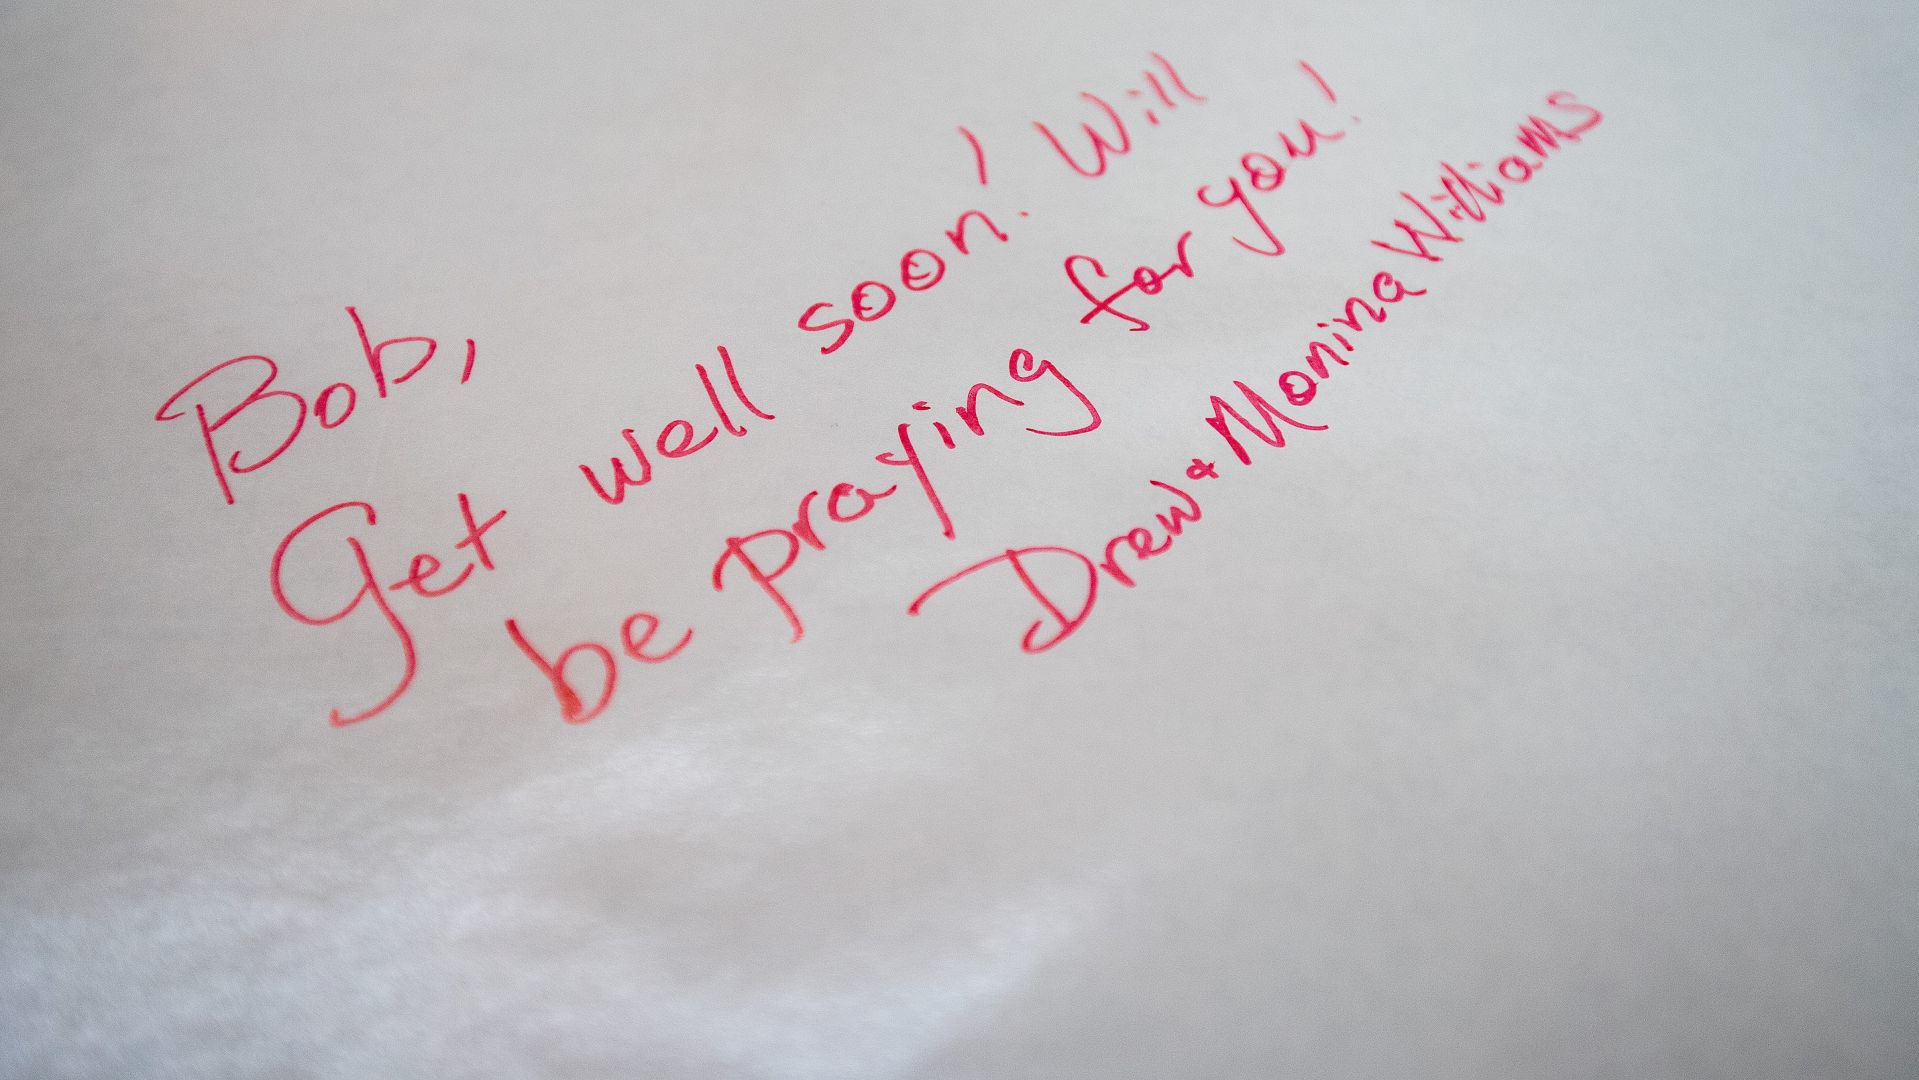 Bob,
Get well soon! Will
be praying for you!
Drew & Monina Williams